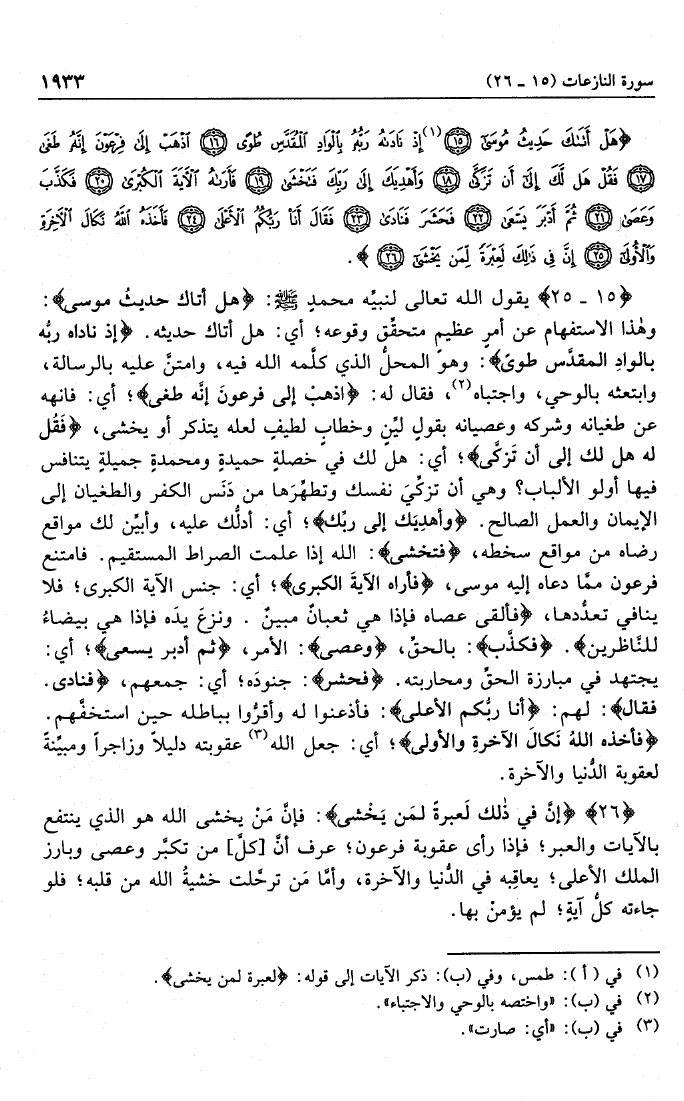 سورة النازعات (١٥ ـ ٢٦) ١٩٣٣
﴿هَلْ أَتَىٰكَ حَدِيثُ مُوسَىٰٓ ﴿١٥﴾(١) إِذْ نَادَىٰهُ رَبُّهُۥ بِٱلْوَادِ ٱلْمُقَدَّسِ طُوًى ﴿١٦﴾ ٱذْهَبْ إِلَىٰ فِرْعَوْنَ إِنَّهُۥ طَغَىٰ
﴿١٧﴾ فَقُلْ هَل لَّكَ إِلَىٰٓ أَن تَزَكَّىٰ ﴿١٨﴾ وَأَهْدِيَكَ إِلَىٰ رَبِّكَ فَتَخْشَىٰ ﴿١٩﴾ فَأَرَىٰهُ ٱلْءَايَةَ ٱلْكُبْرَىٰ ﴿٢٠﴾ فَكَذَّبَ
وَعَصَىٰ ﴿٢١﴾ ثُمَّ أَدْبَرَ يَسْعَىٰ ﴿٢٢﴾ فَحَشَرَ فَنَادَىٰ ﴿٢٣﴾ فَقَالَ أَنَا۠ رَبُّكُمُ ٱلْأَعْلَىٰ ﴿٢٤﴾ فَأَخَذَهُ ٱللَّهُ نَكَالَ ٱلْءَاخِرَةِ
وَٱلْأُولَىٰٓ ﴿٢٥﴾ إِنَّ فِى ذَٰلِكَ لَعِبْرَةً لِّمَن يَخْشَىٰٓ ﴿٢٦﴾﴾.
﴿١٥ ـ ٢٥﴾ يقول الله تعالى لنبيِّه محمدٍ ﷺ: ﴿هل أتاك حديثُ موسى﴾:
وهٰذا الاستفهام عن أمرٍ عظيم متحقِّق وقوعه؛ أي: هل أتاك حديثه. ﴿إذ ناداه ربُّه
بالوادِ المقدَّس طوىً﴾: وهو المحلُّ الذي كلَّمه الله فيه، وامتنَّ عليه بالرسالة،
وابتعثه بالوحي، واجتباه(٢)، فقال له: ﴿اذهبْ إلى فرعونَ إنَّه طغى﴾؛ أي: فانهه
عن طغيانه وشركه وعصيانه بقولٍ ليِّن وخطابٍ لطيفٍ لعله يتذكر أو يخشى، ﴿فَقُل
له هل لك إلى أن تَزكَّى﴾؛ أي: هل لك في خصلةٍ حميدةٍ ومحمدةٍ جميلةٍ يتنافس
فيها أولو الألباب؟ وهي أن تزكِّيَ نفسك وتطهِّرَها من دَنَس الكفر والطغيان إلى
الإيمان والعمل الصالح. ﴿وأهدِيَك إلى ربِّك﴾؛ أي: أدلُّك عليه، وأبيِّن لك مواقع
رضاه من مواقع سخطه، ﴿فتخشى﴾: الله إذا علمت الصراط المستقيم. فامتنع
فرعون ممَّا دعاه إليه موسى، ﴿فأراه الآيةَ الكبرى﴾؛ أي: جنس الآية الكبرى؛ فلا
ينافي تعدُّدها، ﴿فألقى عصاه فإذا هي ثعبانٌ مبينٌ . ونزعَ يدَه فإذا هي بيضاءُ
للنَّاظرين﴾. ﴿فكذَّب﴾: بالحقِّ، ﴿وعصى﴾: الأمر، ﴿ثم أدبر يسعى﴾؛ أي:
يجتهد في مبارزة الحقِّ ومحاربته. ﴿فحشر﴾: جنودَه؛ أي: جمعهم، ﴿فنادى.
فقال﴾: لهم: ﴿أنا ربُّكم الأعلى﴾: فأذعنوا له وأقرُّوا بباطله حين استخفَّهم.
﴿فأخذه اللهُ نَكالَ الآخرةِ والأولى﴾؛ أي: جعل الله(٣) عقوبته دليلاً وزاجراً ومبيِّنةً
لعقوبة الدُّنيا والآخرة.
﴿٢٦﴾ ﴿إنَّ في ذٰلك لَعبرةً لمَن يَخْشى﴾: فإنَّ مَنْ يخشى الله هو الذي ينتفع
بالآيات والعبر؛ فإذا رأى عقوبة فرعون؛ عرف أنَّ [كلَّ] من تكبَّر وعصى وبارز
الملك الأعلى؛ يعاقِبه في الدُّنيا والآخرة، وأمَّا مَن ترحَّلت خشيةُ الله من قلبه؛ فلو
جاءته كلُّ آيةٍ؛ لم يؤمنْ بها.
(١) في (أ): طمس، وفي (ب): ذكر الآيات إلى قوله: ﴿لعبرة لمن يخشى﴾.
(٢) في (ب): «واختصه بالوحي والاجتباء».
(٣) في (ب): «أي: صارت».